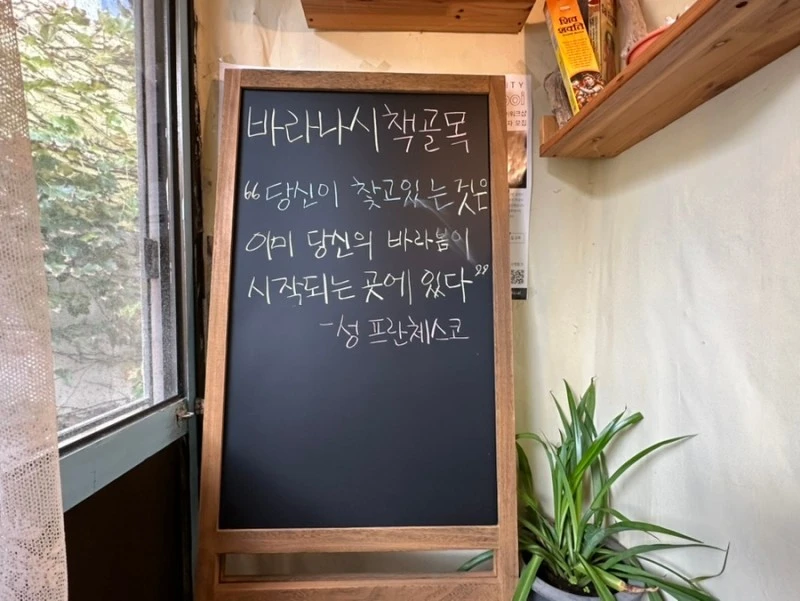 바라나시책골목
“당신이 찾고있는것은
이미 당신의 바라봄이
시작되는 곳에 있다”
-성 프란체스코
शिव
शक्ति